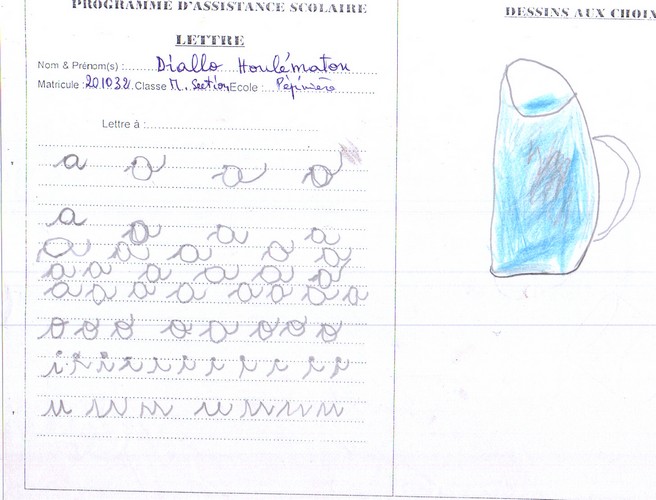 PROGRAMME D'ASSISTANCE SCOLAIRE
LETTRE
Nom & Prénom(s) : Diallo Houlématou
Matricule : 201032. Classe M. Section Ecole : Pépinière
Lettre à :
a a a a
a a a a
a a a a a
a a a a a a
a a a a a a a a
o o o o o o o o
i i i i i i i i i i i
u u u u u u u
DESSINS AUX CHOIX